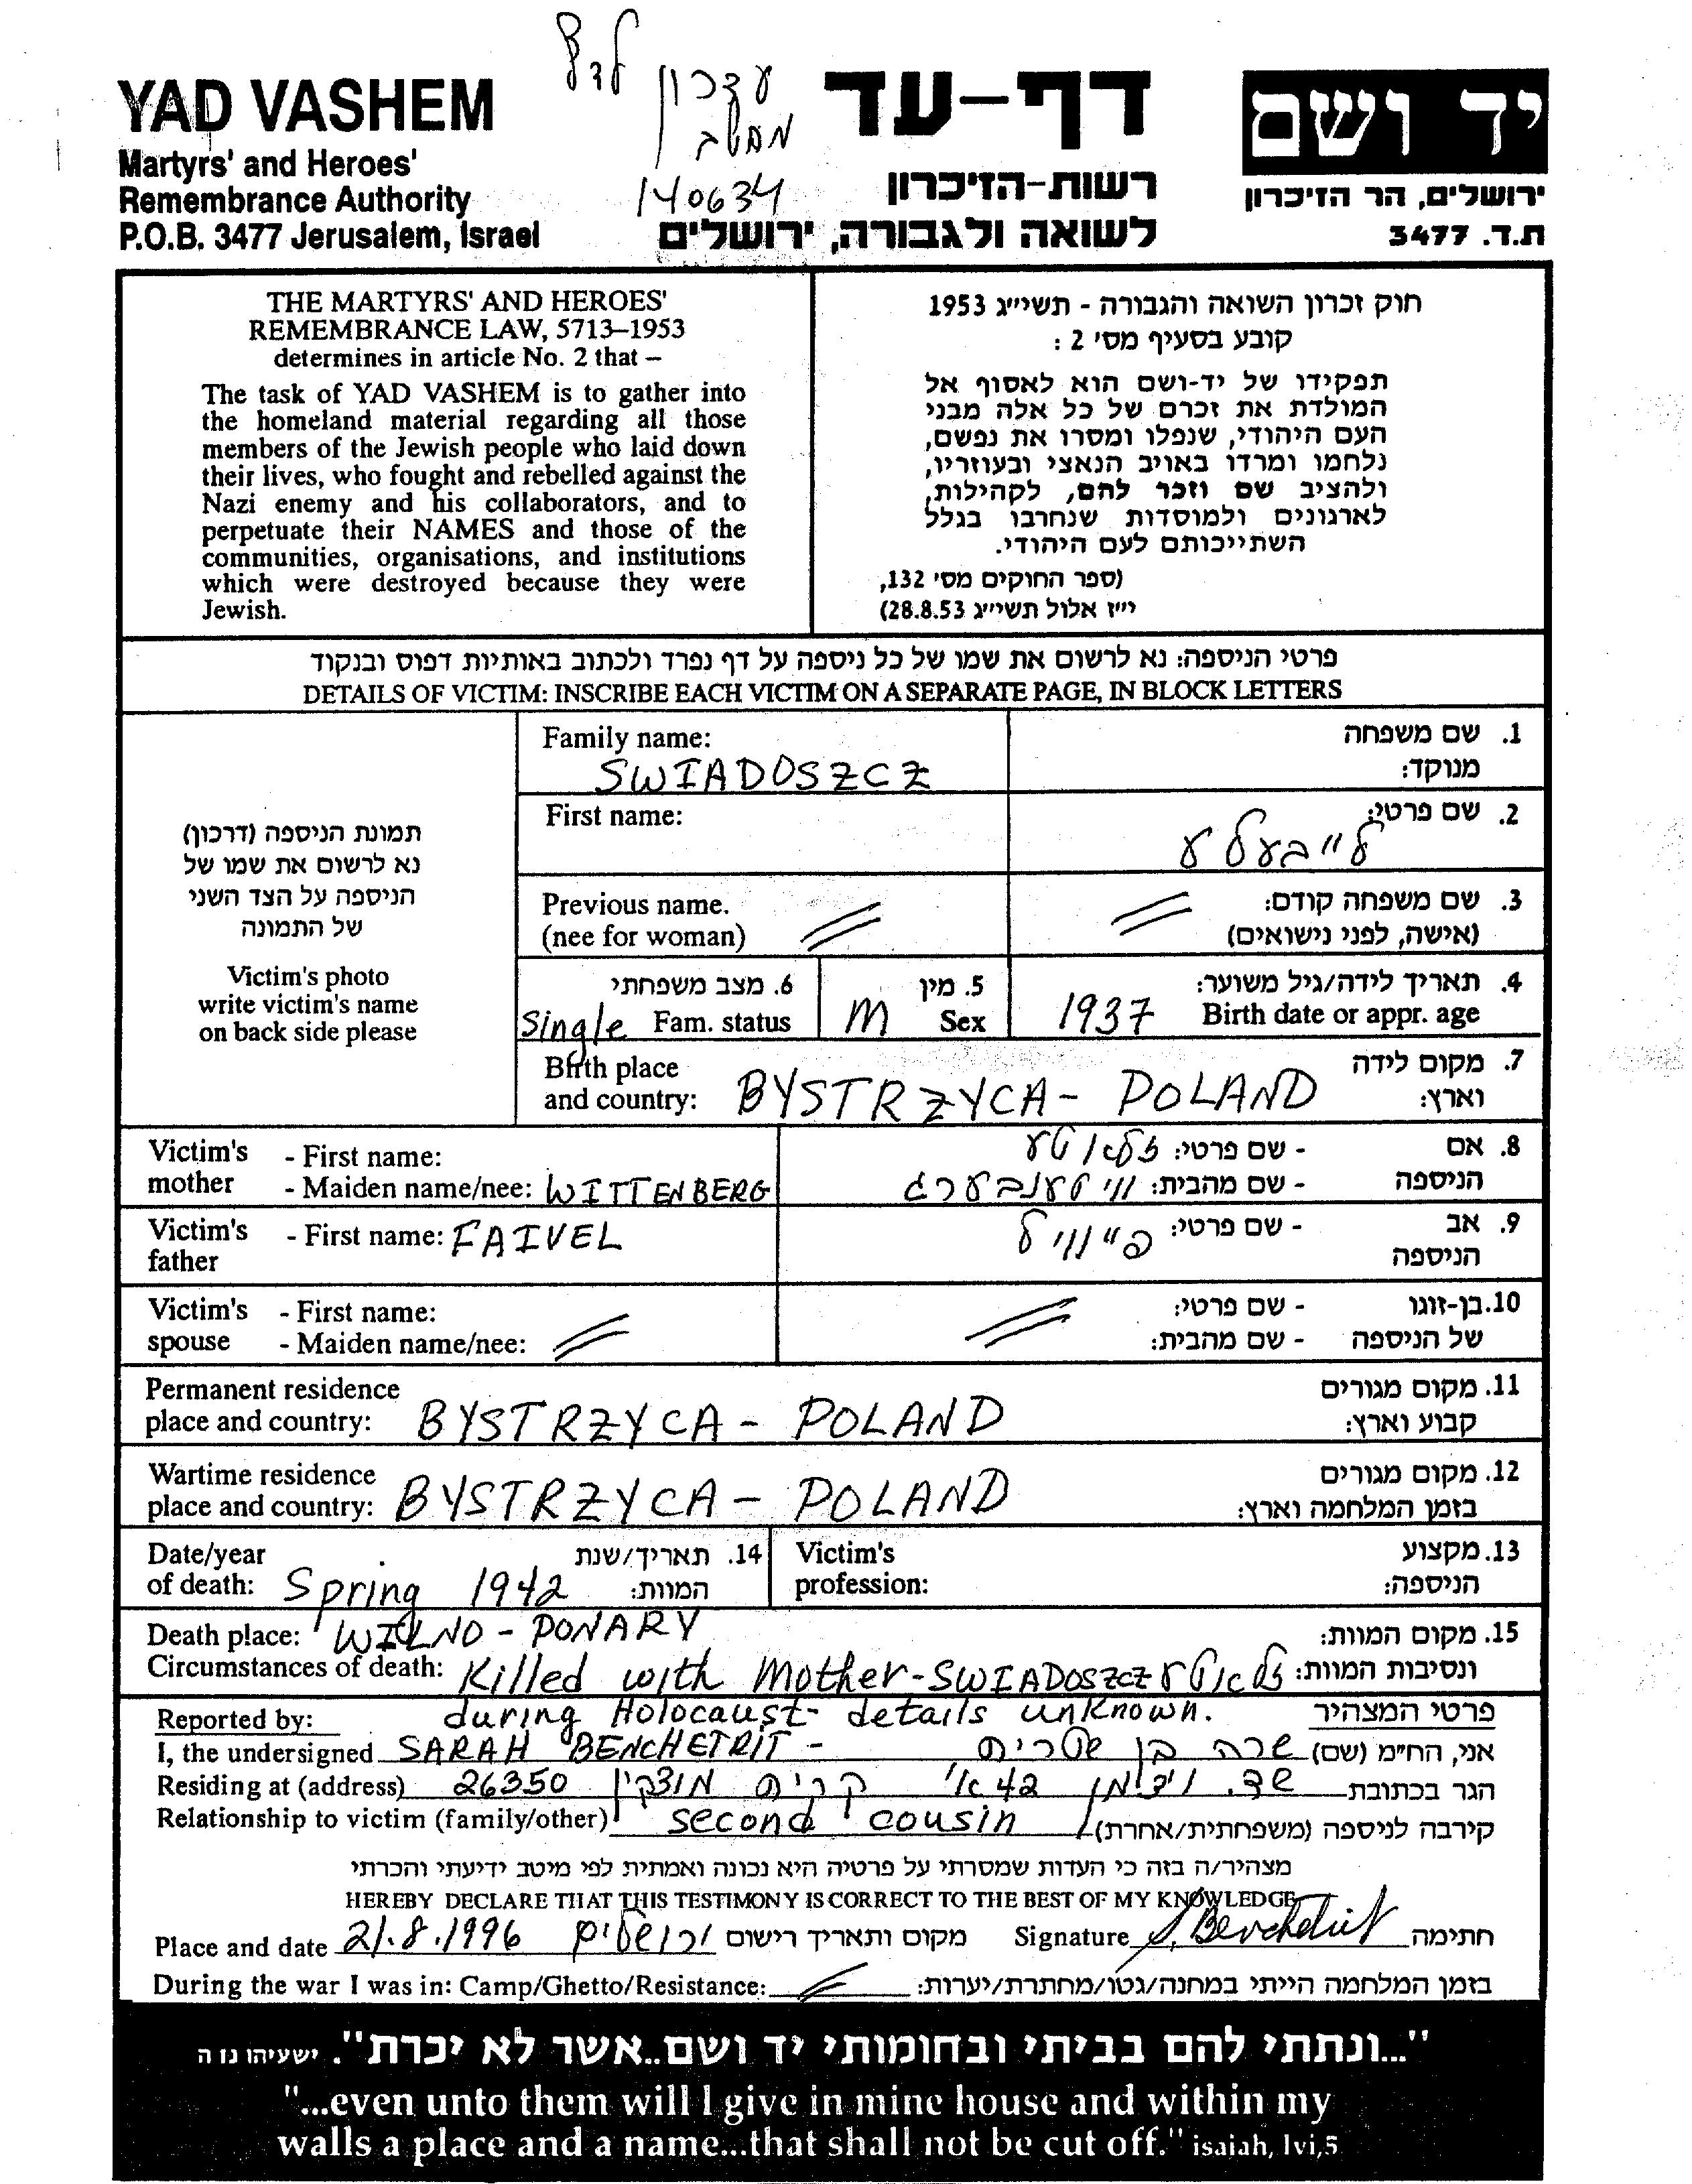 YAD VASHEM
Martyrs' and Heroes'
Remembrance Authority
P.O.B. 3477 Jerusalem, Israel
עדכון
140634
דף-עד
רשות-הזיכרון
לשואה ולגבורה, ירושלים
יד ושם
ירושלים, הר הזיכרון
ת.ד. 3477
THE MARTYRS' AND HEROES'
REMEMBRANCE LAW, 5713–1953
determines in article No. 2 that –
The task of YAD VASHEM is to gather into
the homeland material regarding all those
members of the Jewish people who laid down
their lives, who fought and rebelled against the
Nazi enemy and his collaborators, and to
perpetuate their NAMES and those of the
communities, organisations, and institutions
which were destroyed because they were
Jewish.
חוק זכרון השואה והגבורה - תשי״ג 1953
קובע בסעיף מס' 2 :
תפקידו של יד-ושם הוא לאסוף אל
המולדת את זכרם של כל אלה מבני
העם היהודי, שנפלו ומסרו את נפשם,
נלחמו ומרדו באויב הנאצי ובעוזריו,
ולהציב שם וזכר להם, לקהילות,
לארגונים ולמוסדות שנחרבו בגלל
השתייכותם לעם היהודי.
(ספר החוקים מס' 132,
י״ז אלול תשי״ג 28.8.53)
פרטי הניספה: נא לרשום את שמו של כל ניספה על דף נפרד ולכתוב באותיות דפוס ובנקוד
DETAILS OF VICTIM: INSCRIBE EACH VICTIM ON A SEPARATE PAGE, IN BLOCK LETTERS
תמונת הניספה (דרכון)
נא לרשום את שמו של
הניספה על הצד השני
של התמונה
Victim's photo
write victim's name
on back side please
Family name: 1. שם משפחה
SWIADOSZCZ מנוקד:
First name: 2. שם פרטי:
לייבעלע
Previous name. 3. שם משפחה קודם:
(nee for woman) (אישה, לפני נישואים)
6. מצב משפחתי 5. מין 4. תאריך לידה/גיל משוער:
single Fam. status M Sex 1937 Birth date or appr. age
Birth place 7. מקום לידה
and country: BYSTRZYCA - POLAND וארץ:
Victim's - First name: זלאטע - שם פרטי: 8. אם
mother - Maiden name/nee: WITTENBERG וויטענבערג - שם מהבית: הניספה
Victim's - First name: FAIVEL פייוויל - שם פרטי: 9. אב
father הניספה
Victim's - First name: - שם פרטי: 10. בן-זוגו
spouse - Maiden name/nee: - שם מהבית: של הניספה
Permanent residence 11. מקום מגורים
place and country: BYSTRZYCA - POLAND קבוע וארץ:
Wartime residence 12. מקום מגורים
place and country: BYSTRZYCA - POLAND בזמן המלחמה וארץ:
Date/year 14. תאריך/שנת Victim's 13. מקצוע
of death: Spring 1942 המוות: profession: הניספה:
Death place: WILNO - PONARY 15. מקום המוות:
Circumstances of death: Killed with Mother - SWIADOSZCZ זלאטע ונסיבות המוות:
Reported by: during Holocaust - details unknown. פרטי המצהיר
I, the undersigned SARAH BENCHETRIT - שרה בן שטרית אני, הח״מ (שם)
Residing at (address) 26350 קרית מוצקין 42 א' שד. ויצמן הגר בכתובת
Relationship to victim (family/other) second cousin קירבה לניספה (משפחתית/אחרת)
מצהיר/ה בזה כי העדות שמסרתי על פרטיה היא נכונה ואמתית לפי מיטב ידיעתי והכרתי
HEREBY DECLARE THAT THIS TESTIMONY IS CORRECT TO THE BEST OF MY KNOWLEDGE
Place and date 21.8.1996 ירושלים מקום ותאריך רישום Signature S. Benchetrit חתימה
During the war I was in: Camp/Ghetto/Resistance: בזמן המלחמה הייתי במחנה/גטו/מחתרת/יערות:
"...ונתתי להם בביתי ובחומותי יד ושם..אשר לא יכרת". ישעיהו נו ה
"...even unto them will I give in mine house and within my
walls a place and a name...that shall not be cut off." isaiah, lvi,5